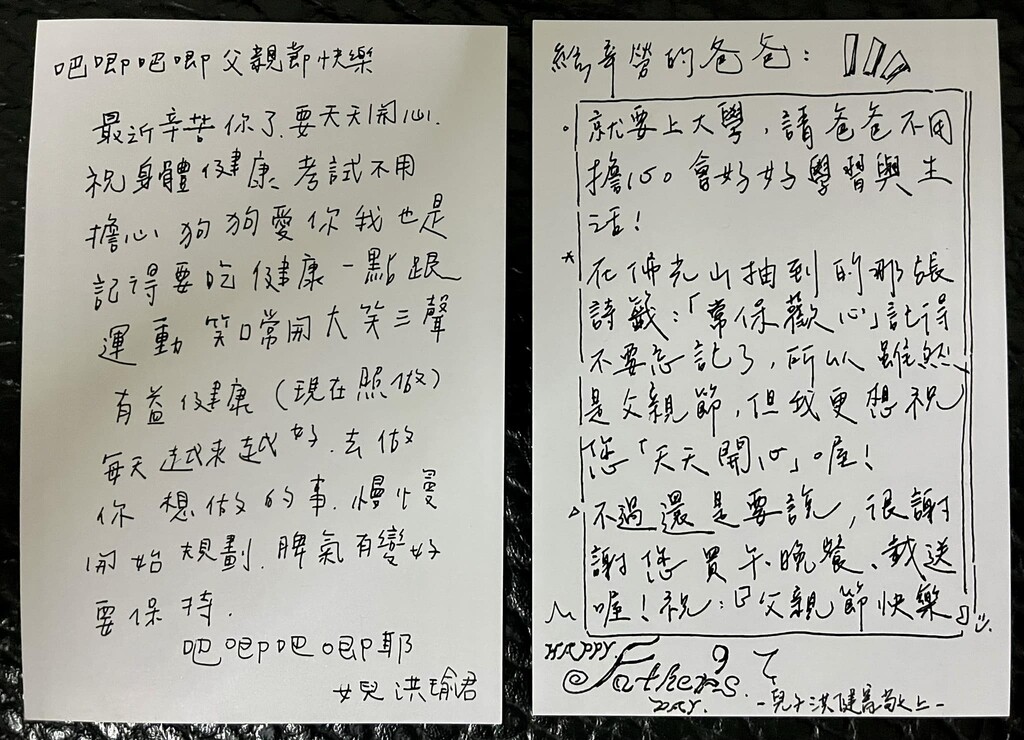 吧唧吧唧父親節快樂
最近辛苦你了.要天天開心.
祝身體健康.考試不用
擔心 狗狗愛你我也是
記得要吃健康一點跟
運動 笑口常開大笑三聲
有益健康(現在照做)
每天越來越好.去做
你想做的事.慢慢
開始規劃.脾氣有變好
要保持.
吧唧吧唧耶
女兒 洪瑜君
給辛勞的爸爸:
就要上大學,請爸爸不用
擔心。會好好學習與生
活!
在佛光山抽到的那張
詩籤:「常保歡心」記得
不要忘記了,所以雖然
是父親節,但我更想祝
您「天天開心」喔!
不過還是要說,很謝
謝您買午晚餐、載送
喔!祝:『父親節快樂』
HAPPY
Father's
DAY.
-兒子洪健 敬上-